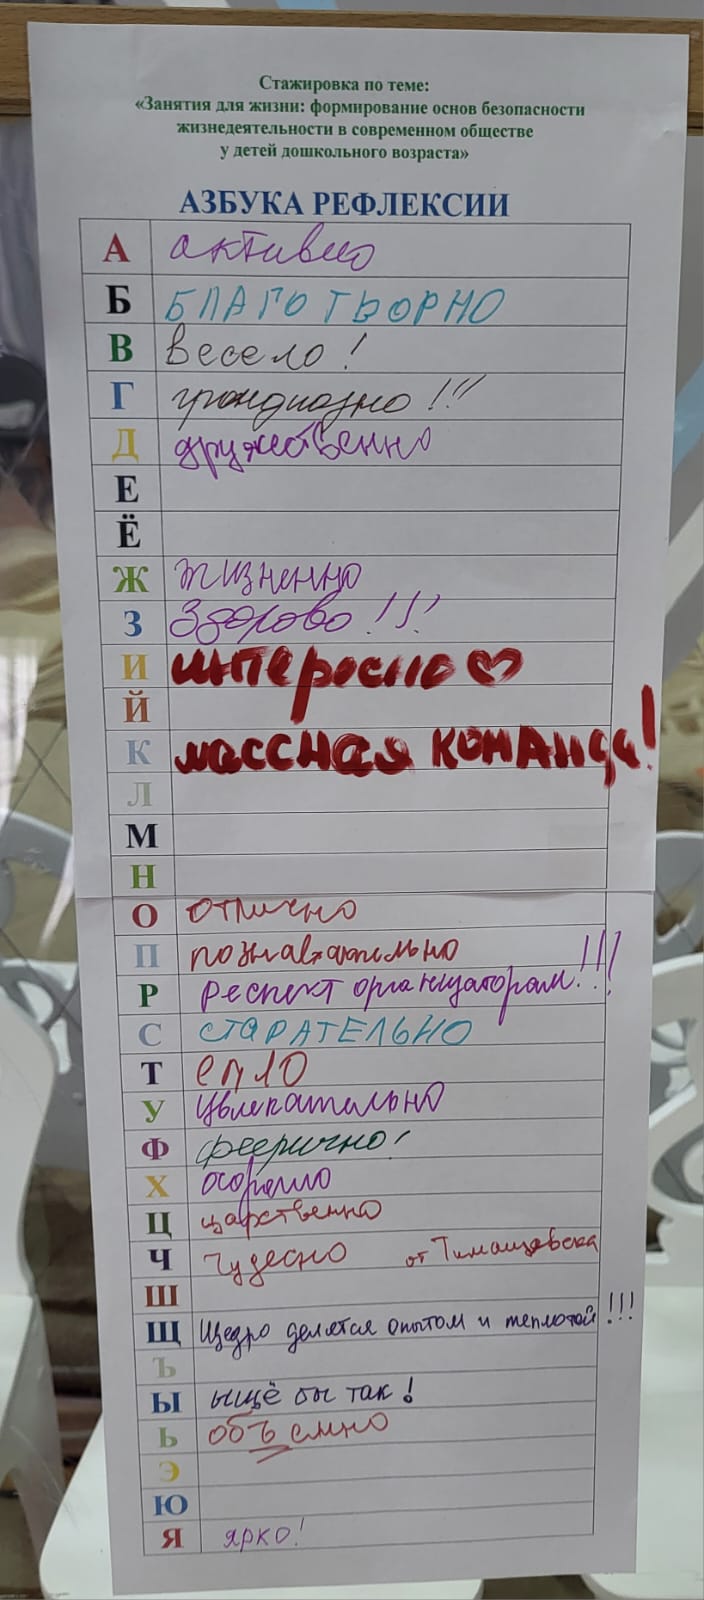 Стажировка по теме:
«Занятия для жизни: формирование основ безопасности
жизнедеятельности в современном обществе
у детей дошкольного возраста»
АЗБУКА РЕФЛЕКСИИ
А активно
Б БЛАГОТВОРНО
В весело!
Г грандиозно!!!
Д дружественно
Е
Ё
Ж жизненно
З Здорово!!!
И интересно ♡
Й
К лассная команда!
Л
М
Н
О отлично
П познавательно
Р респект организаторам!!!
С СТАРАТЕЛЬНО
Т епло
У увлекательно
Ф феерично!
Х орошо
Ц царственно
Ч Чудесно от Тимашевска
Ш
Щ Щедро делятся опытом и теплотой!!!
Ъ
Ы ыщё бы так!
Ь объемно
Э
Ю
Я ярко!